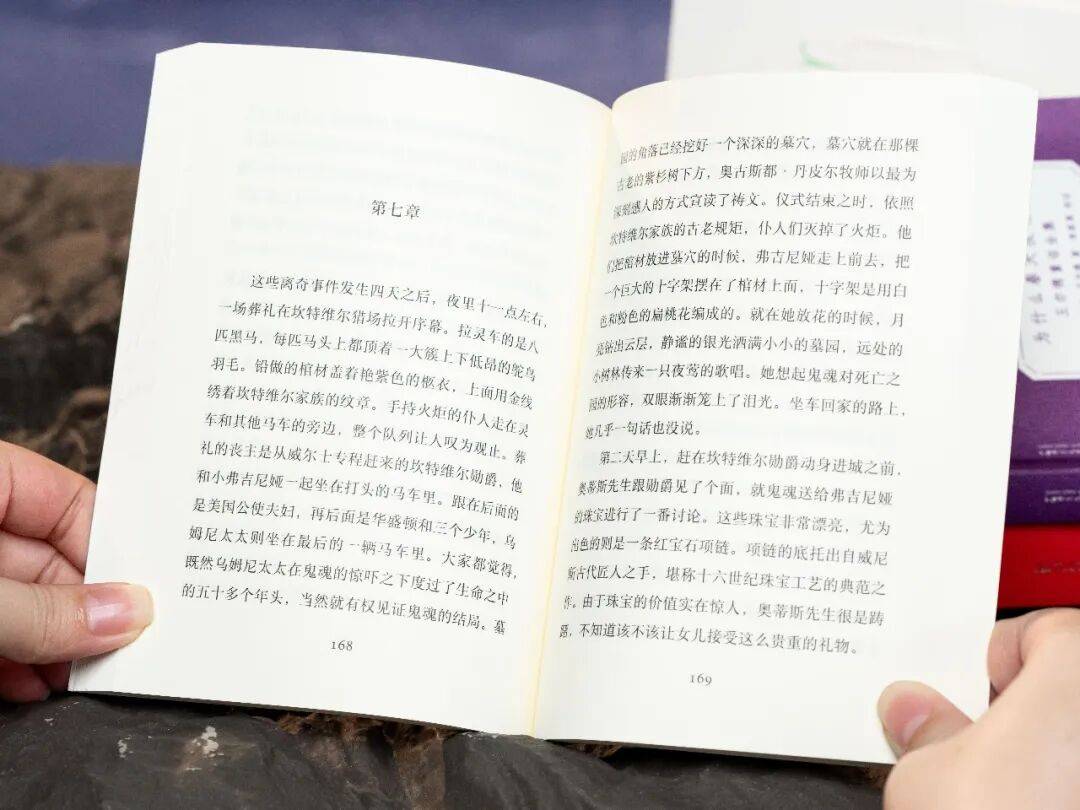 第七章
这些离奇事件发生四天之后，夜里十一点左右，
一场葬礼在坎特维尔猎场拉开序幕。拉灵车的是八
匹黑马，每匹马头上都顶着一大簇上下低昂的鸵鸟
羽毛。铅做的棺材盖着艳紫色的柩衣，上面用金线
绣着坎特维尔家族的纹章。手持火炬的仆人走在灵
车和其他马车的旁边，整个队列让人叹为观止。葬
礼的丧主是从威尔士专程赶来的坎特维尔勋爵，他
和小弗吉尼娅一起坐在打头的马车里。跟在后面的
是美国公使夫妇，再后面是华盛顿和三个少年，乌
姆尼太太则坐在最后的一辆马车里。大家都觉得，
既然乌姆尼太太在鬼魂的惊吓之下度过了生命之中
的五十多个年头，当然就有权见证鬼魂的结局。墓
168
园的角落已经挖好一个深深的墓穴，墓穴就在那棵
古老的紫杉树下方，奥古斯都·丹皮尔牧师以最为
深刻感人的方式宣读了祷文。仪式结束之时，依照
坎特维尔家族的古老规矩，仆人们灭掉了火炬。他
们把棺材放进墓穴的时候，弗吉尼娅走上前去，把
一个巨大的十字架摆在了棺材上面，十字架是用白
色和粉色的扁桃花编成的。就在她放花的时候，月
亮钻出云层，静谧的银光洒满小小的墓园，远处的
小树林传来一只夜莺的歌唱。她想起鬼魂对死亡之
园的形容，双眼渐渐笼上了泪光。坐车回家的路上，
她几乎一句话也没说。
第二天早上，赶在坎特维尔勋爵动身进城之前，
奥蒂斯先生跟勋爵见了个面，就鬼魂送给弗吉尼娅
的珠宝进行了一番讨论。这些珠宝非常漂亮，尤为
出色的则是一条红宝石项链。项链的底托出自威尼
斯古代匠人之手，堪称十六世纪珠宝工艺的典范之
作。由于珠宝的价值实在惊人，奥蒂斯先生很是踌
躇，不知道该不该让女儿接受这么贵重的礼物。
169